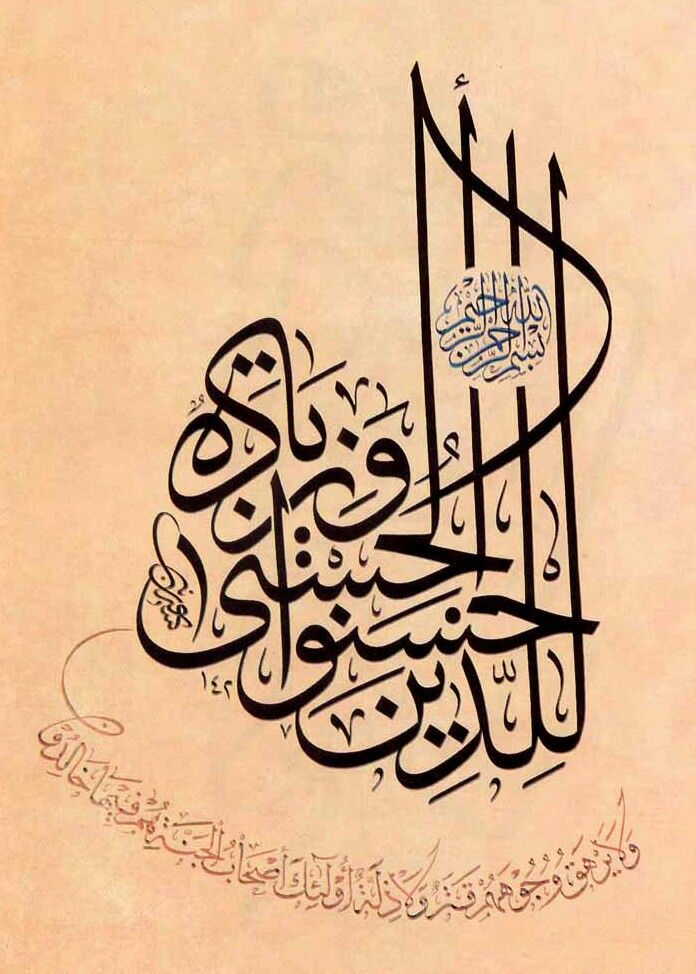 بسم الله الرحمن الرحيم
للذين أحسنوا الحسنى وزيادة
ولا يرهق وجوههم قتر ولا ذلة أولئك أصحاب الجنة هم فيها خالدون